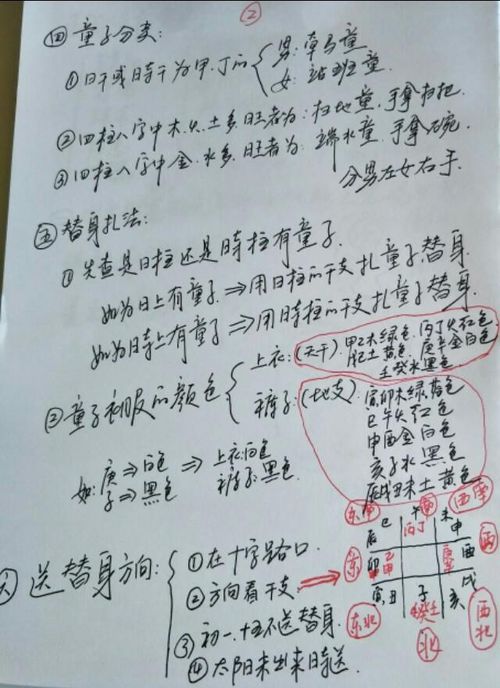 ②
四 童子分类:
①日干或时干为甲.丁的
男:牵马童
女:站班童.
②四柱八字中木.火.土多.旺者为:扫地童,手拿扫把.
③四柱八字中金.水多.旺者为:端水童.手拿碗.
分男左女右手.
五 替身扎法:
①先查是日柱还是时柱有童子.
如为日上有童子⇒用日柱的干支扎童子替身
如为时上有童子⇒用时柱的干支扎童子替身.
②童子衣服的颜色
上衣:(天干).甲乙木绿色.丙丁火红色
戊己土黄色.庚辛金白色
壬癸水黑色
裤子:(地支).寅卯木绿色
巳午火红色
申酉金白色
亥子水黑色
辰戌丑未土黄色
如:庚⇒白色 ⇒ 上衣白色
子⇒黑色 裤子黑色.
六 送替身方向:
①在十字路口.
②方向看干支.
③初一.十五不送替身.
④太阳未出来时送
东南 南 西南
辰 巳 午 未 申
丙丁
东 卯 乙甲 庚辛 酉 西
寅 丑 子 亥 戌
癸壬
东北 北 西北